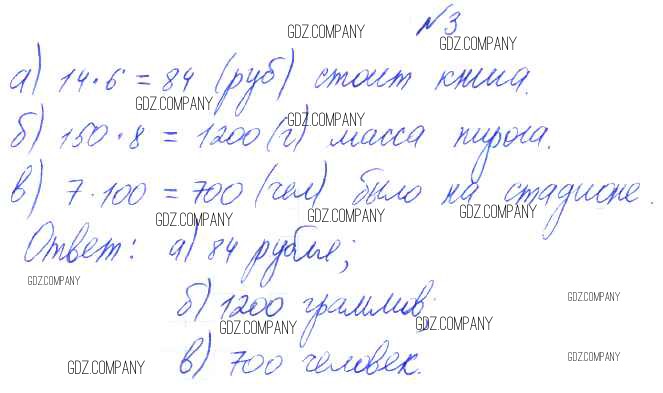 №3
GDZ.COMPANY
GDZ.COMPANY
а) 14·6 = 84 (руб) стоит книга.
GDZ.COMPANY
GDZ.COMPANY
б) 150·8 = 1200 (г) масса пирога.
в) 7·100 = 700 (чел) было на стадионе.
GDZ.COMPANY GDZ.COMPANY GDZ.COMPANY
Ответ: а) 84 рубля;
GDZ.COMPANY
б) 1200 граммов;
GDZ.COMPANY
GDZ.COMPANY GDZ.COMPANY
в) 700 человек.
GDZ.COMPANY GDZ.COMPANY